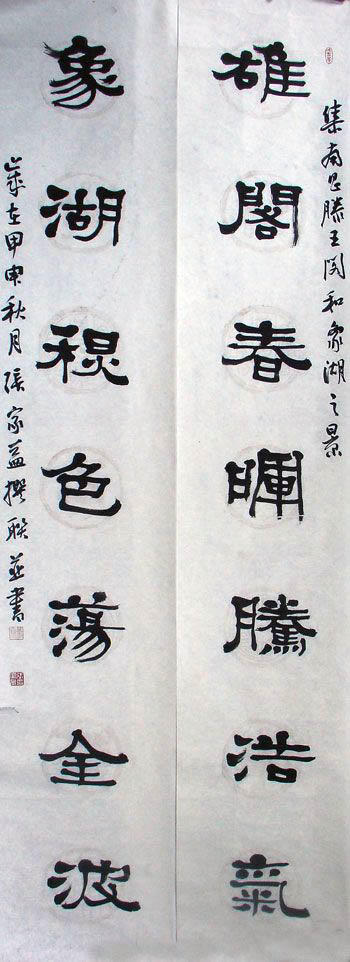 集南昌滕王阁和象湖之景
雄閣春暉騰浩氣
象湖秋色蕩金波
歲在甲申秋月張家益撰联並書